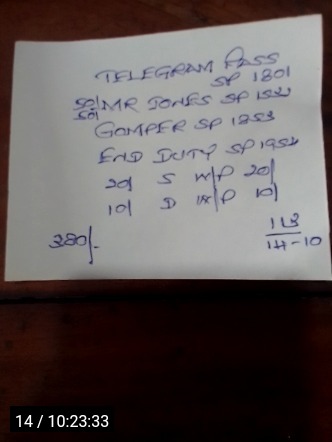 TELEGRAM PASS
SP 1801
50/ MR JONES SP 1532
50/
GOMPER SP 1853
END DUTY SP 1952
20/ S W/P 20/
10/ D W/P 10/
380/-
113
14-10
14 / 10:23:33